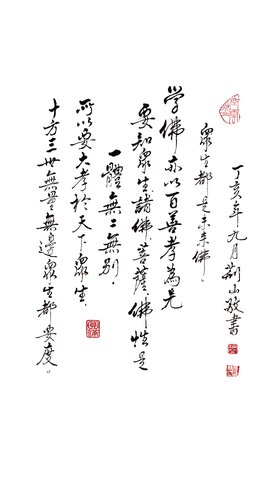 丁亥年九月荊山敬書
眾生都是未來佛。
学佛亦以百善孝為先
要知眾生諸佛菩薩、佛性是
一體無二無別。
所以要大孝於天下眾生、
十方三世無量無邊眾生都要度。